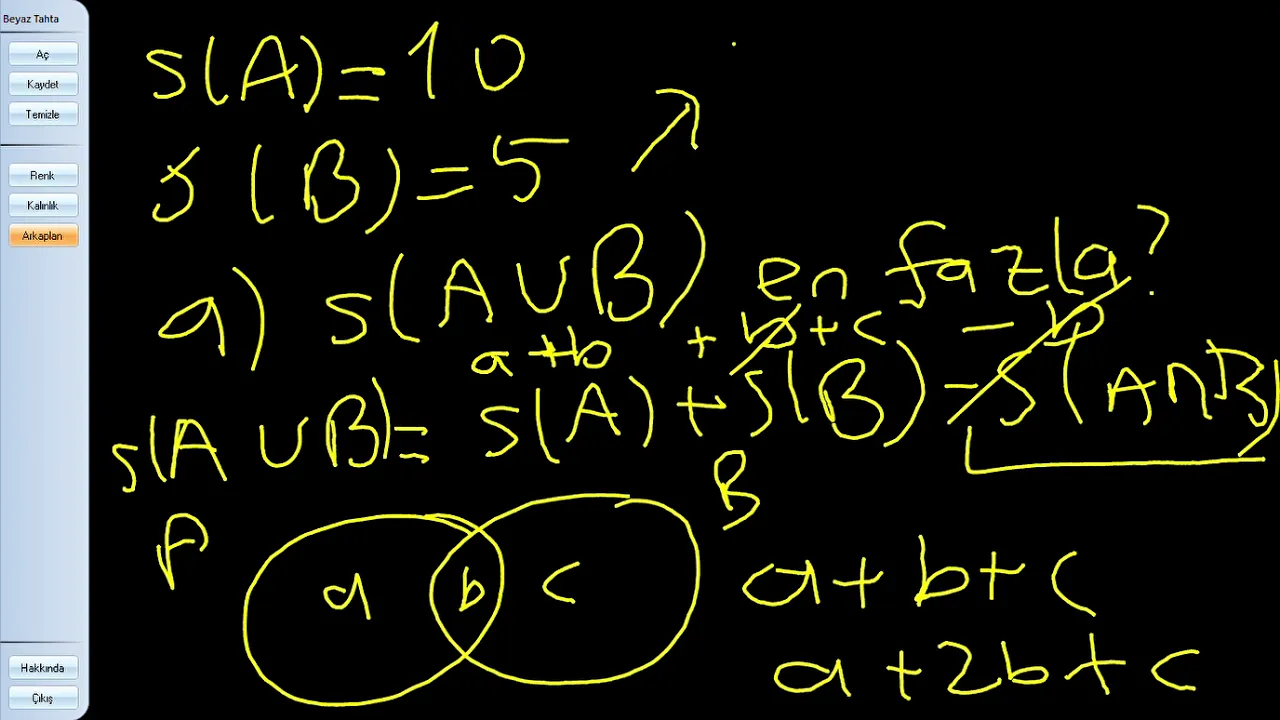 Beyaz Tahta
Aç
Kaydet
Temizle
Renk
Kalınlık
Arkaplan
Hakkında
Çıkış
s(A)=10
s(B)=5
a) s(A∪B) en fazla?
a+b + b+c - b
s(A∪B)= s(A)+s(B)-s(A∩B)
B
A
a b c
a+b+c
a+2b+c